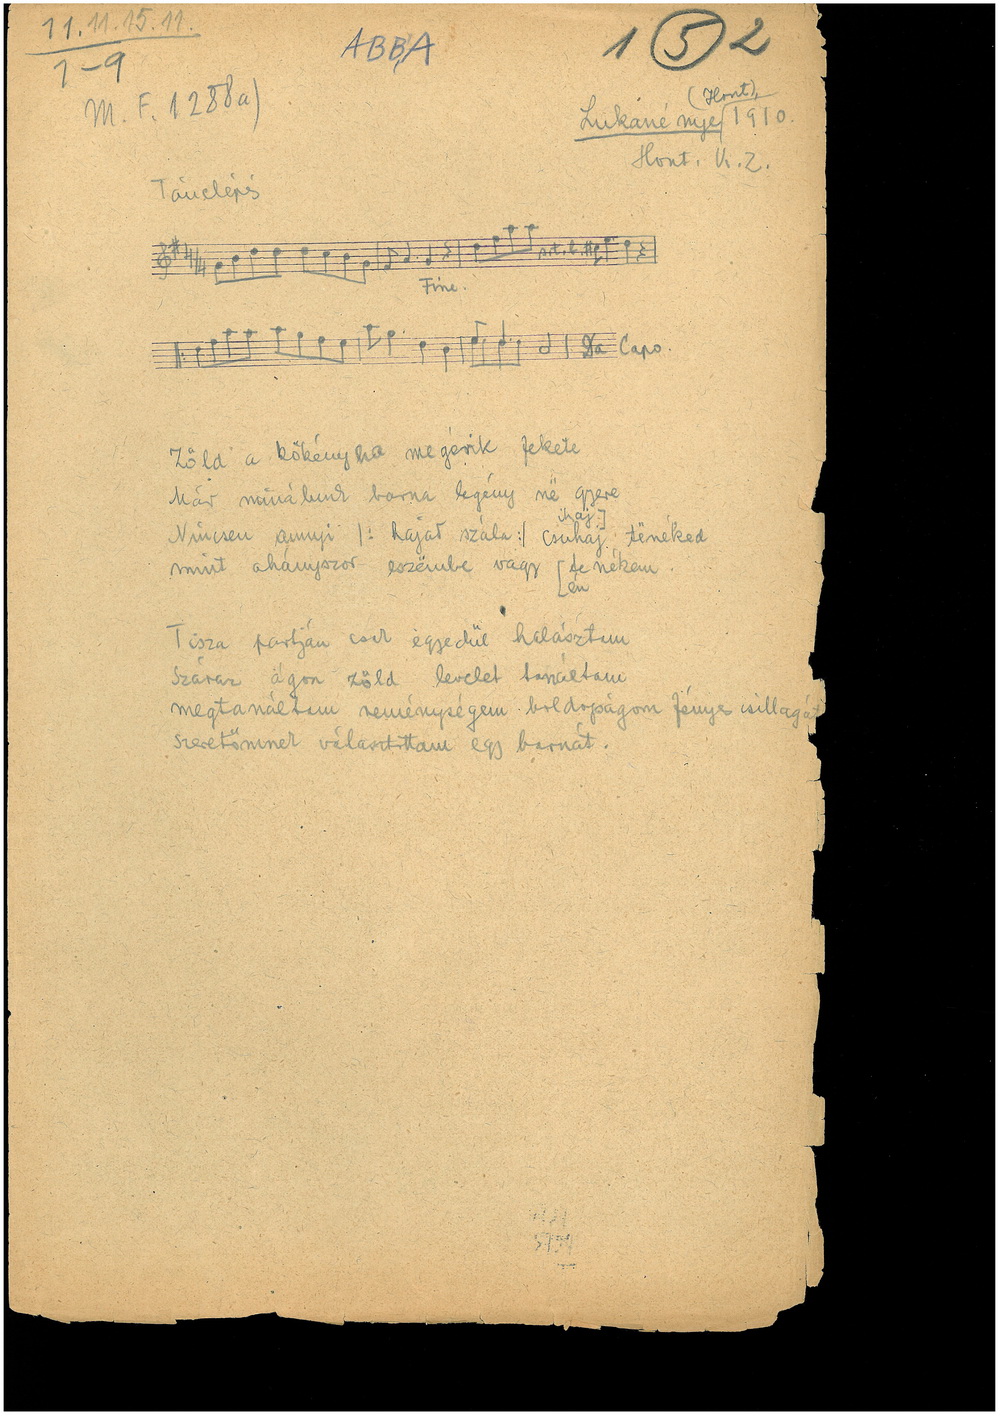 11.11.15.11.
1-9
ABBA
1 5 2
M. F. 1288a)
(Hont),
Lukanénye 1910.
Hont. K. Z.
Tánclépés
Fine.
Da Capo.
Zöld a kökény ha megérik fekete
Már minálunk barna legény në gyere
ihaj]
Nincsen annyi |: hajat szála :| csuhaj tënéked
mint ahányszor eszëmbe vagy [te nékem.
[én
Tisza partján csak ëgyedül halásztam
Száraz ágon zöld levelet tanáltam
megtanáltam reménységem boldogságom fényes csillagát
szeretőmnek választottam egy barnát.